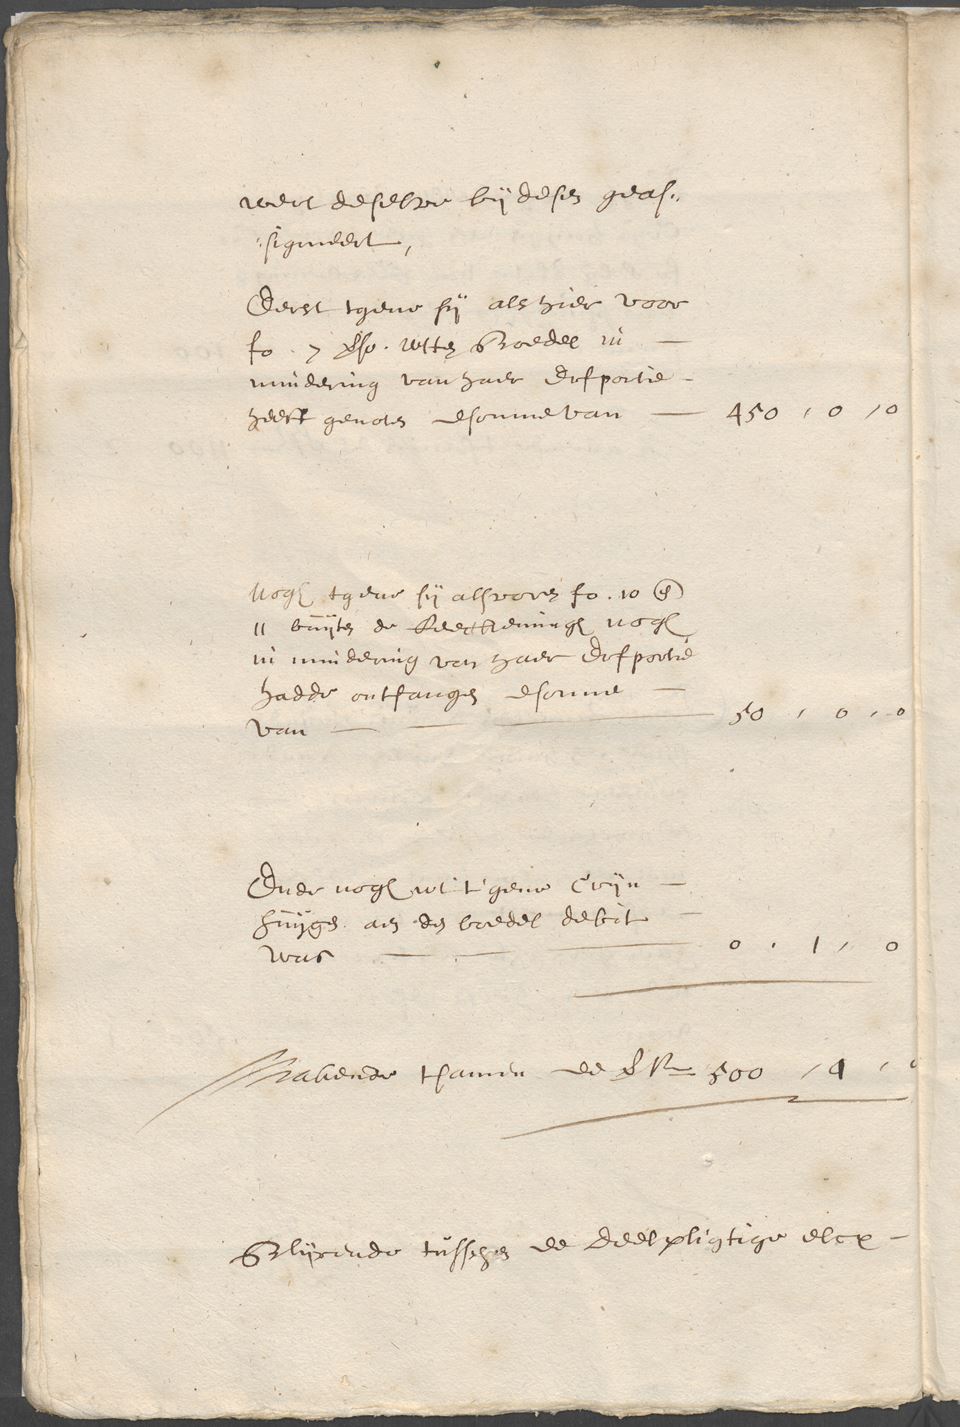 wert deselve bij desen geas-
signeert,
Eerst tgene sij als hier voor
fo. 7 vso. wtten Boedel in
mindering van haer Erfportie
heeft genoten desomme van — 450 , 0 , 0
Nogh tgene sij als voren fo. 10 en
11 buijten de Reeckeningh nogh
in mindering van haer Erfportie
hadde ontfangen desomme
van — 50 , 0 , 0
Ende nogh wt tgene Crijn
huijgen aen den boedel debit
was — 0 . 1 , 0
Makende tsamen de 500 , 1 ,
Blijvende tusschen de deelpligtige elcx